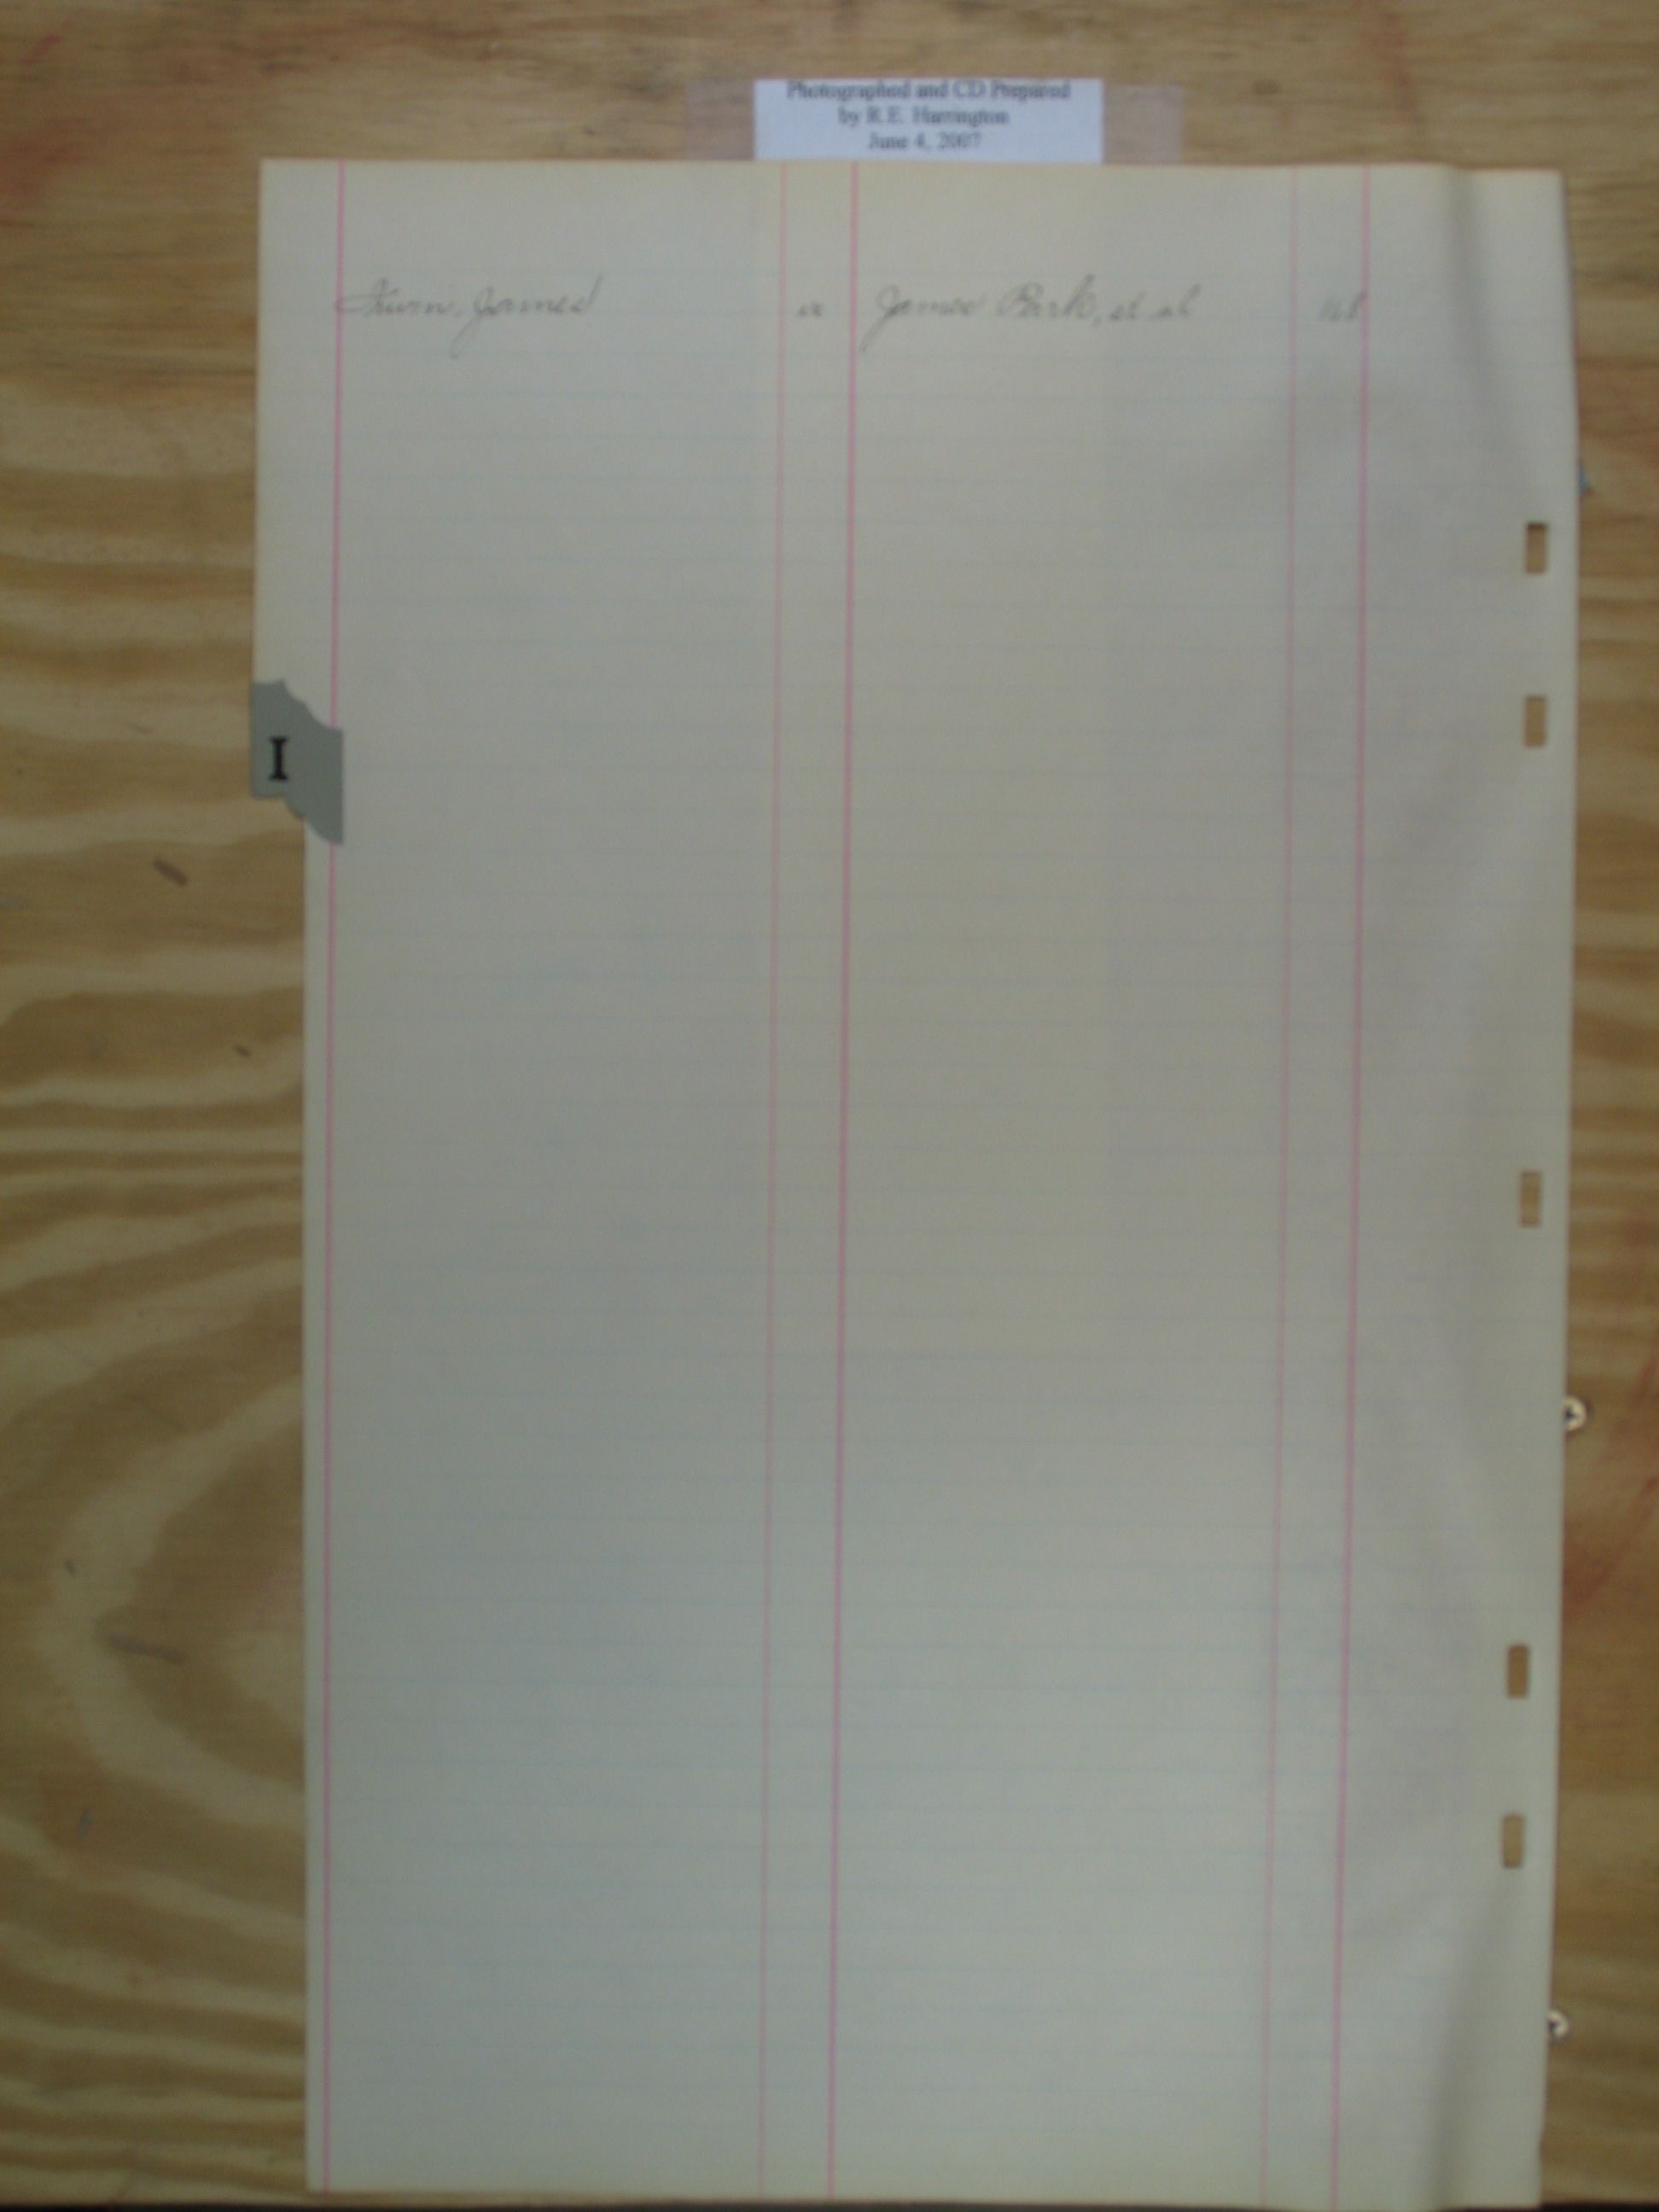 Photographed and CD Prepared
by R.E. Harrington
June 4, 2007
Irwin, James vs James Park, et al 168
I